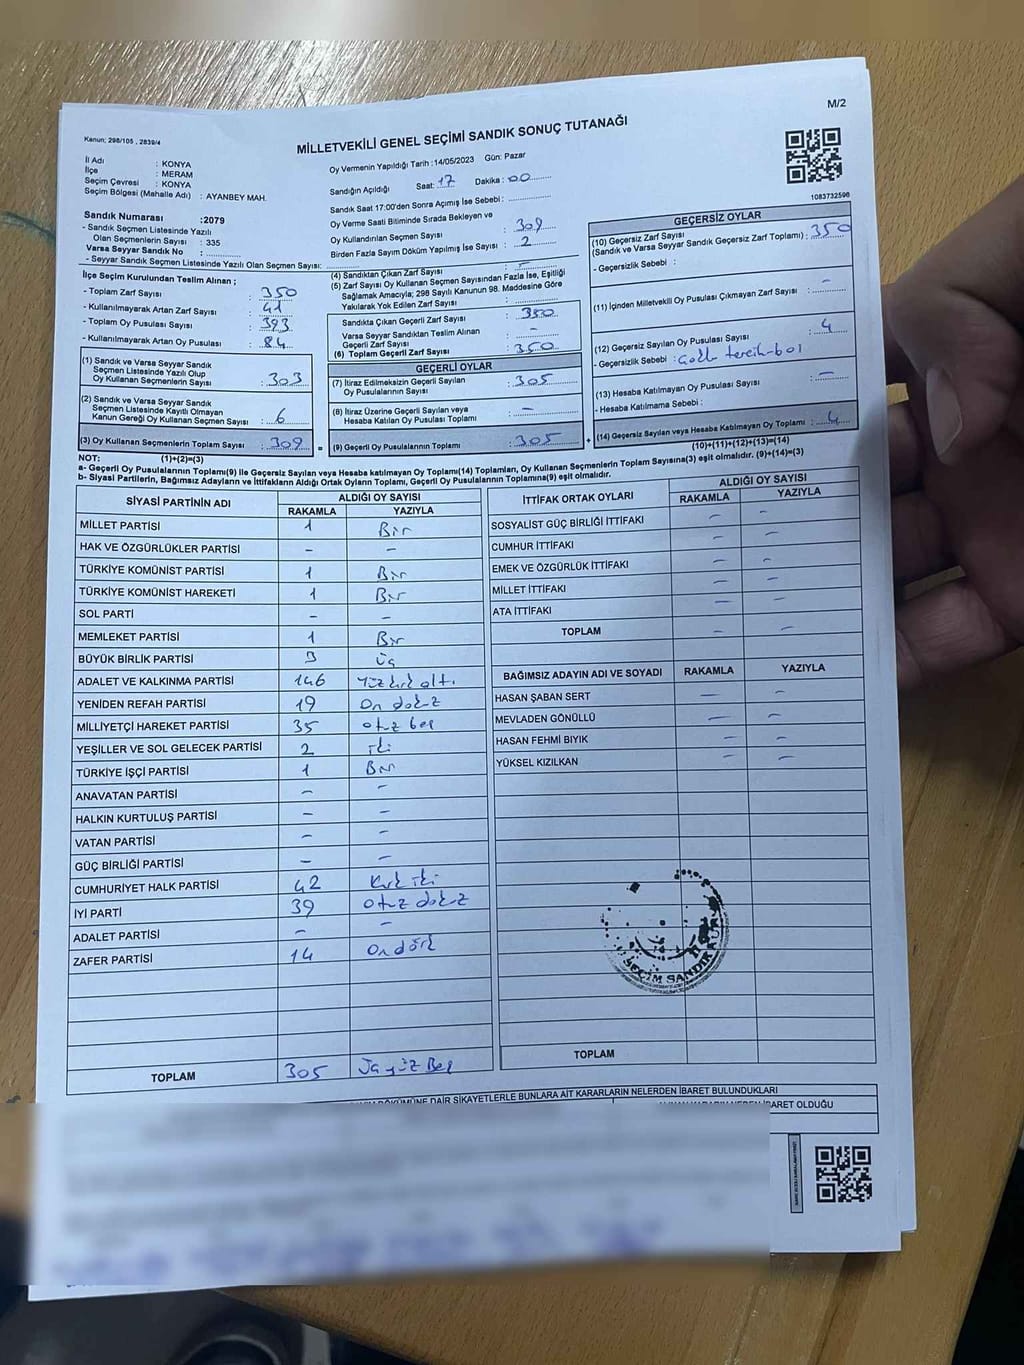 M/2
Kanun; 298/105 , 2839/4
MİLLETVEKİLİ GENEL SEÇİMİ SANDIK SONUÇ TUTANAĞI
İl Adı : KONYA
İlçe : MERAM
Seçim Çevresi : KONYA
Seçim Bölgesi (Mahalle Adı) : AYANBEY MAH.
Sandık Numarası :2079
- Sandık Seçmen Listesinde Yazılı
Olan Seçmenlerin Sayısı : 335
Varsa Seyyar Sandık No :
- Seyyar Sandık Seçmen Listesinde Yazılı Olan Seçmen Sayısı:
Oy Vermenin Yapıldığı Tarih :14/05/2023 Gün: Pazar
Sandığın Açıldığı Saat: 17 Dakika : 00
Sandık Saat 17:00'den Sonra Açımış İse Sebebi :
Oy Verme Saati Bitiminde Sırada Bekleyen ve
Oy Kullandırılan Seçmen Sayısı : 309
Birden Fazla Sayım Döküm Yapılmış İse Sayısı : 2
1083732596
İlçe Seçim Kurulundan Teslim Alınan ;
- Toplam Zarf Sayısı : 350
- Kullanılmayarak Artan Zarf Sayısı : 41
- Toplam Oy Pusulası Sayısı : 393
- Kullanılmayarak Artan Oy Pusulası : 84
(1) Sandık ve Varsa Seyyar Sandık
Seçmen Listesinde Yazılı Olup
Oy Kullanan Seçmenlerin Sayısı : 303
(2) Sandık ve Varsa Seyyar Sandık
Seçmen Listesinde Kayıtlı Olmayan
Kanun Gereği Oy Kullanan Seçmen Sayısı : 6
(3) Oy Kullanan Seçmenlerin Toplam Sayısı : 309
(1)+(2)=(3)
(4) Sandıktan Çıkan Zarf Sayısı : -
(5) Zarf Sayısı Oy Kullanan Seçmen Sayısından Fazla İse, Eşitliği
Sağlamak Amacıyla; 298 Sayılı Kanunun 98. Maddesine Göre
Yakılarak Yok Edilen Zarf Sayısı :
Sandıkta Çıkan Geçerli Zarf Sayısı : 350
Varsa Seyyar Sandıktan Teslim Alınan
Geçerli Zarf Sayısı : -
(6) Toplam Geçerli Zarf Sayısı : 350
GEÇERLİ OYLAR
(7) İtiraz Edilmeksizin Geçerli Sayılan
Oy Pusulasının Sayısı : 305
(8) İtiraz Üzerine Geçerli Sayılan veya
Hesaba Katılan Oy Pusulası Toplamı : -
(9) Geçerli Oy Pusulalarının Toplamı : 305
GEÇERSİZ OYLAR
(10) Geçersiz Zarf Sayısı
(Sandık ve Varsa Seyyar Sandık Geçersiz Zarf Toplamı) : 350
- Geçersizlik Sebebi :
(11) İçinden Milletvekili Oy Pusulası Çıkmayan Zarf Sayısı : -
(12) Geçersiz Sayılan Oy Pusulası Sayısı : 4
- Geçersizlik Sebebi :
(13) Hesaba Katılmayan Oy Pusulası Sayısı : -
- Hesaba Katılmama Sebebi :
(14) Geçersiz Sayılan veya Hesaba Katılmayan Oy Toplamı : 4
(10)+(11)+(12)+(13)=(14)
NOT:
a- Geçerli Oy Pusulalarının Toplamı(9) ile Geçersiz Sayılan veya Hesaba katılmayan Oy Toplamı(14) Toplamları, Oy Kullanan Seçmenlerin Toplam Sayısına(3) eşit olmalıdır. (9)+(14)=(3)
b- Siyasi Partilerin, Bağımsız Adayların ve İttifakların Aldığı Ortak Oyların Toplamı, Geçerli Oy Pusulalarının Toplamına(9) eşit olmalıdır.
SİYASİ PARTİNİN ADI ALDIĞI OY SAYISI
RAKAMLA YAZIYLA
MİLLET PARTİSİ 1 Bir
HAK VE ÖZGÜRLÜKLER PARTİSİ - -
TÜRKİYE KOMÜNİST PARTİSİ 1 Bir
TÜRKİYE KOMÜNİST HAREKETİ 1 Bir
SOL PARTİ - -
MEMLEKET PARTİSİ 1 Bir
BÜYÜK BİRLİK PARTİSİ 3 üç
ADALET VE KALKINMA PARTİSİ 146 Yüz kırk altı
YENİDEN REFAH PARTİSİ 19 On dokuz
MİLLİYETÇİ HAREKET PARTİSİ 35 otuz beş
YEŞİLLER VE SOL GELECEK PARTİSİ 2 iki
TÜRKİYE İŞÇİ PARTİSİ 1 Bir
ANAVATAN PARTİSİ - -
HALKIN KURTULUŞ PARTİSİ - -
VATAN PARTİSİ - -
GÜÇ BİRLİĞİ PARTİSİ - -
CUMHURİYET HALK PARTİSİ 42 kırk iki
İYİ PARTİ 39 otuz dokuz
ADALET PARTİSİ - -
ZAFER PARTİSİ 14 On dört
TOPLAM 305
İTTİFAK ORTAK OYLARI ALDIĞI OY SAYISI
RAKAMLA YAZIYLA
SOSYALİST GÜÇ BİRLİĞİ İTTİFAKI - -
CUMHUR İTTİFAKI - -
EMEK VE ÖZGÜRLÜK İTTİFAKI - -
MİLLET İTTİFAKI - -
ATA İTTİFAKI - -
TOPLAM - -
BAĞIMSIZ ADAYIN ADI VE SOYADI RAKAMLA YAZIYLA
HASAN ŞABAN SERT - -
MEVLADEN GÖNÜLLÜ - -
HASAN FEHMİ BIYIK - -
YÜKSEL KIZILKAN - -
SEÇİM SANDIK KUR
TOPLAM
DÖKÜMÜNE DAİR ŞİKAYETLERLE BUNLARA AİT KARARLARIN NELERDEN İBARET BULUNDUKLARI
İBARET OLDUĞU